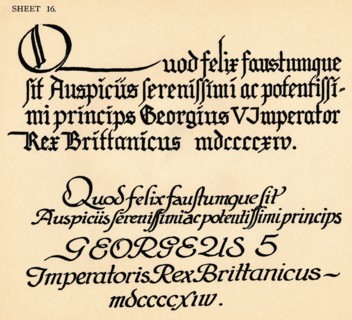 SHEET 16.
Quod felix faustumque
sit Auspiciis serenissimi ac potentissi-
mi princips Georgius V Imperator
Rex Brittanicus mdccccxiv.
Quod felix faustumque sit
Auspiciis serenissimi ac potentissimi princips
GEORGEUS 5
Imperatoris Rex Brittanicus~
mdccccxiv.